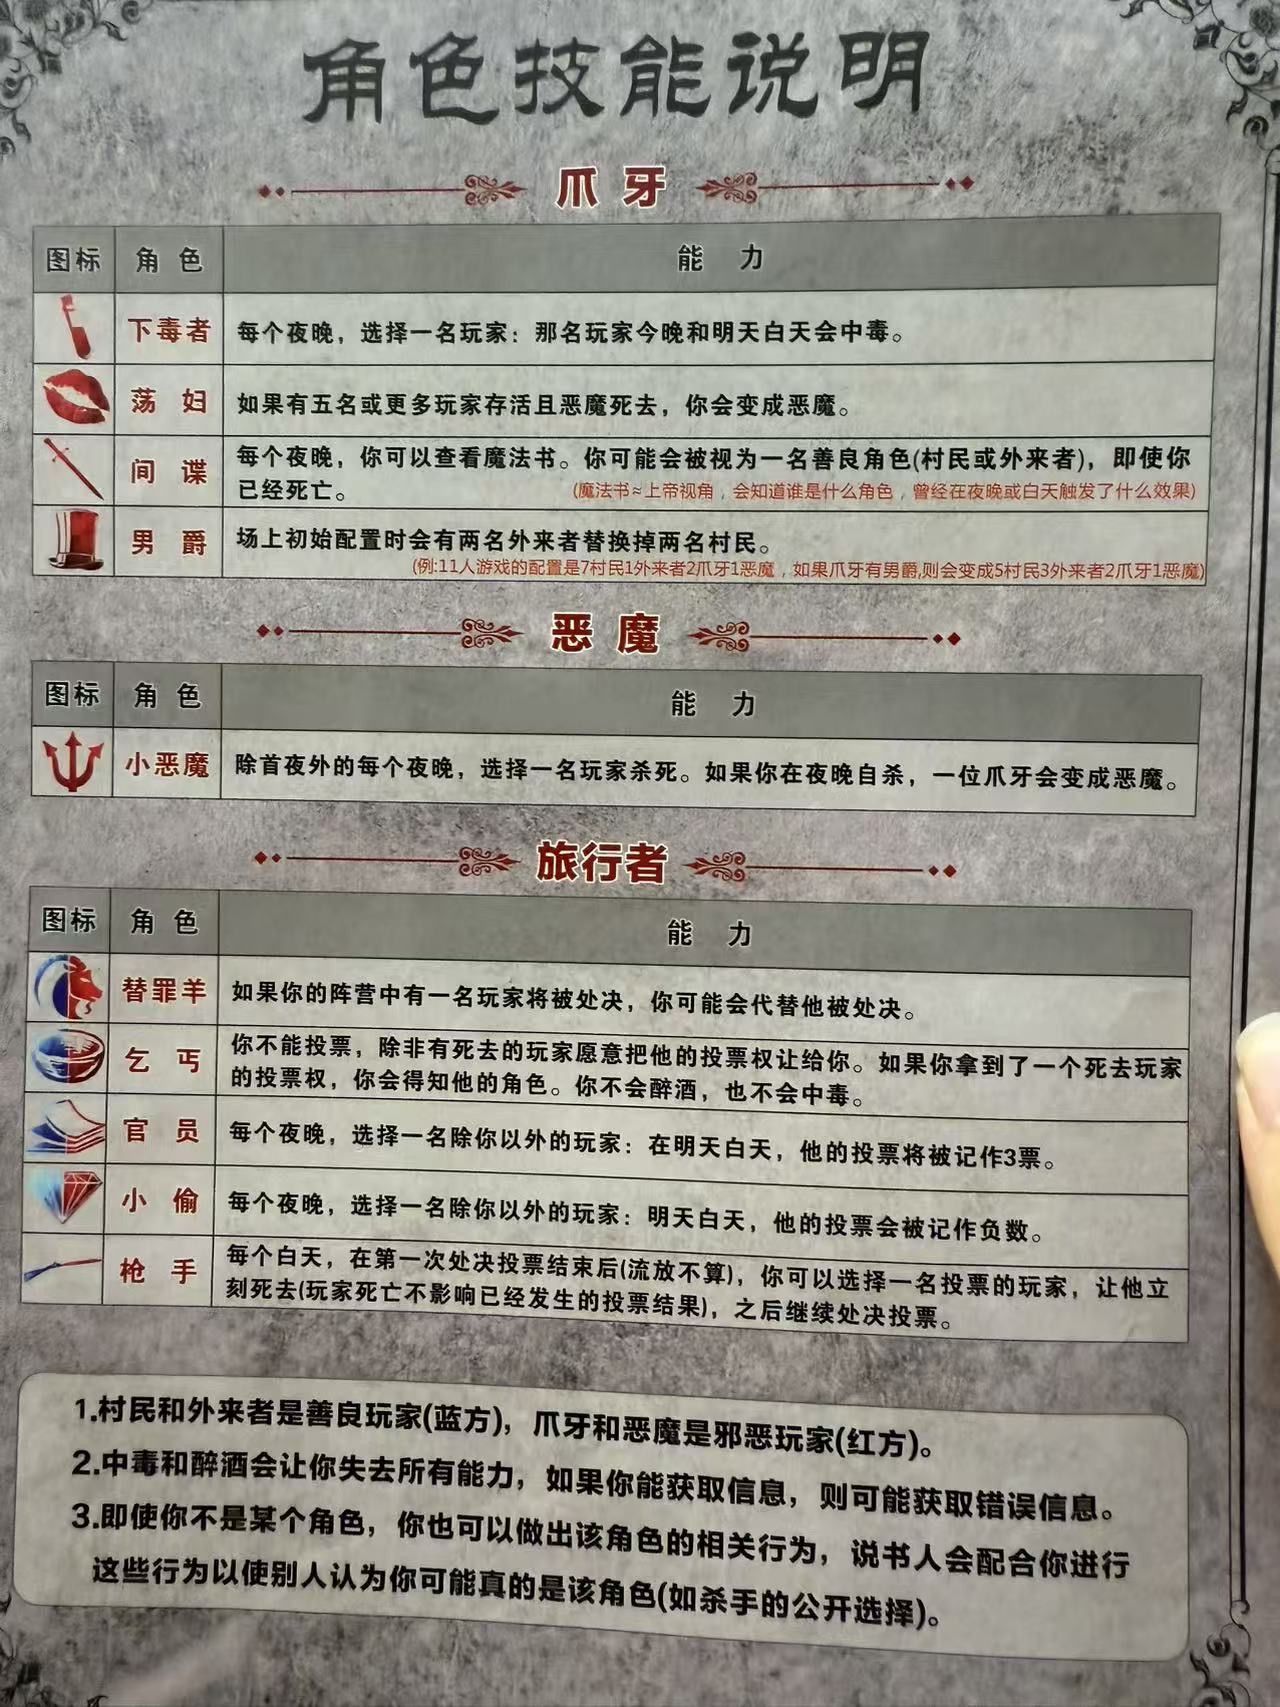 角色技能说明
爪牙
图标 角色 能力
下毒者 每个夜晚，选择一名玩家：那名玩家今晚和明天白天会中毒。
荡妇 如果有五名或更多玩家存活且恶魔死去，你会变成恶魔。
间谍 每个夜晚，你可以查看魔法书。你可能会被视为一名善良角色(村民或外来者)，即使你
已经死亡。 (魔法书≈上帝视角，会知道谁是什么角色，曾经在夜晚或白天触发了什么效果)
男爵 场上初始配置时会有两名外来者替换掉两名村民。
(例:11人游戏的配置是7村民1外来者2爪牙1恶魔，如果爪牙有男爵,则会变成5村民3外来者2爪牙1恶魔)
恶魔
图标 角色 能力
小恶魔 除首夜外的每个夜晚，选择一名玩家杀死。如果你在夜晚自杀，一位爪牙会变成恶魔。
旅行者
图标 角色 能力
替罪羊 如果你的阵营中有一名玩家将被处决，你可能会代替他被处决。
乞丐 你不能投票，除非有死去的玩家愿意把他的投票权让给你。如果你拿到了一个死去玩家
的投票权，你会得知他的角色。你不会醉酒，也不会中毒。
官员 每个夜晚，选择一名除你以外的玩家：在明天白天，他的投票将被记作3票。
小偷 每个夜晚，选择一名除你以外的玩家：明天白天，他的投票会被记作负数。
枪手 每个白天，在第一次处决投票结束后(流放不算)，你可以选择一名投票的玩家，让他立
刻死去(玩家死亡不影响已经发生的投票结果)，之后继续处决投票。
1.村民和外来者是善良玩家(蓝方)，爪牙和恶魔是邪恶玩家(红方)。
2.中毒和醉酒会让你失去所有能力，如果你能获取信息，则可能获取错误信息。
3.即使你不是某个角色，你也可以做出该角色的相关行为，说书人会配合你进行
这些行为以使别人认为你可能真的是该角色(如杀手的公开选择)。